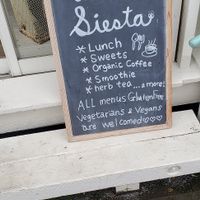 Siesta
* Lunch
* Sweets
* Organic Coffee
* Smoothie
* herb tea...a more!
ALL menus Gluten Free
Vegetarians & Vegans
are welcome